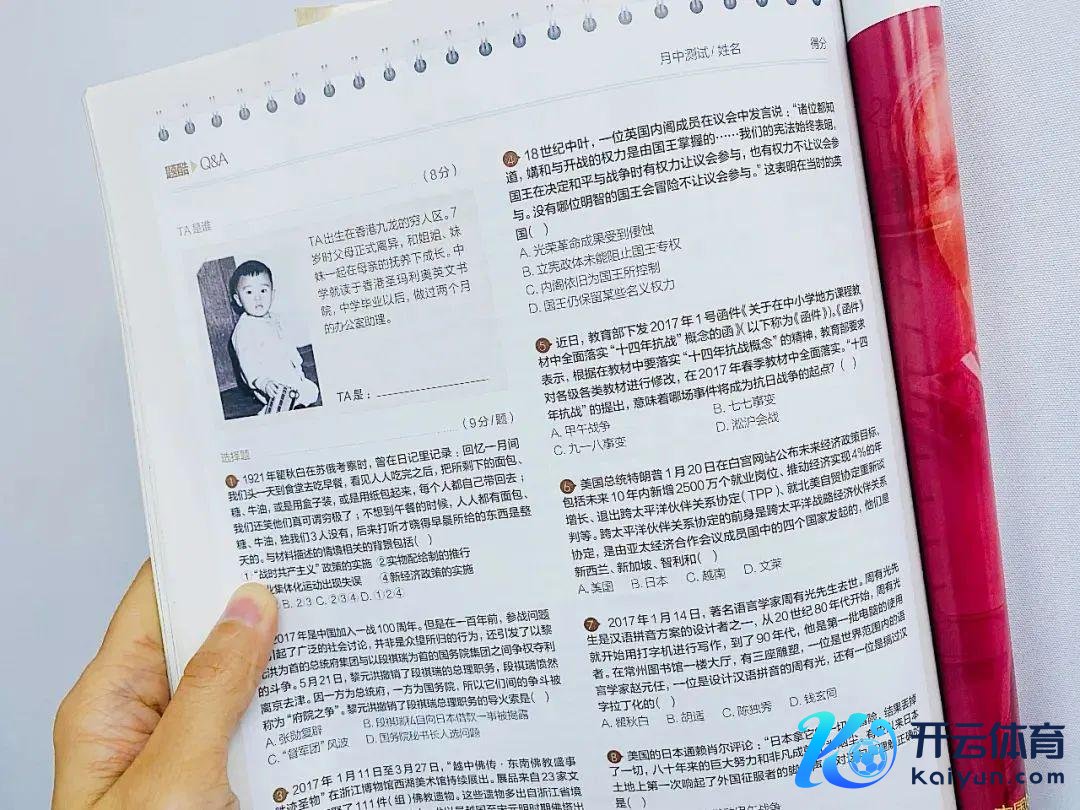 月中测试/姓名
得分
题酷 Q&A
(8分)
TA是谁
TA出生在香港九龙的穷人区。7
岁时父母正式离异,和姐姐、妹
妹一起在母亲的抚养下成长。中
学就读于香港圣玛利奥英文书
院,中学毕业以后,做过两个月
的办公室助理。
TA是:
(9分/题)
选择题
1 1921年瞿秋白在苏俄考察时,曾在日记里记录:回忆一月间
我们头一天到食堂去吃早餐,看见人人吃完之后,把所剩下的面包、
糖、牛油,或是用盒子装,或是用纸包起来,每个人都自己带回去;
我们还笑他们真可谓穷极了;不想到午餐的时候,人人都有面包、
糖、牛油,独我们3人没有,后来打听才晓得早晨所给的东西是整
天的。与材料描述的情境相关的背景包括( )
①“战时共产主义”政策的实施 ②实物配给制的推行
业集体化运动出现失误 ④新经济政策的实施
B.②③ C.②③④ D.①②④
2017年是中国加入一战100周年。但是在一百年前,参战问题
引起了广泛的社会讨论,并非是众望所归的行为,还引发了以黎
元洪为首的总统府集团与以段祺瑞为首的国务院集团之间争权夺利
的斗争。5月21日,黎元洪撤销了段祺瑞的总理职务,段祺瑞愤然
离京去津。因一方为总统府,一方为国务院,所以它们间的争斗被
称为“府院之争”。黎元洪撤销了段祺瑞总理职务的导火索是( )
A. 张勋复辟 B. 段祺瑞私自向日本借款一事被揭露
C. “督军团”风波 D. 国务院秘书长人选问题
3 2017年1月11日至3月27日,“越中佛传·东南佛教盛事
胜迹圣物”在浙江博物馆西湖美术馆持续展出。展品来自23家文
了111件(组)佛教遗物。这些遗物多出自浙江省境
4 18世纪中叶,一位英国内阁成员在议会中发言说:“诸位都知
道,媾和与开战的权力是由国王掌握的……我们的宪法始终表明,
国王在决定和平与战争时有权力让议会参与,也有权力不让议会参
与。没有哪位明智的国王会冒险不让议会参与。”这表明在当时的英
国( )
A. 光荣革命成果受到侵蚀
B. 立宪政体未能阻止国王专权
C. 内阁依旧为国王所控制
D. 国王仍保留某些名义权力
5 近日,教育部下发2017年1号函件《关于在中小学地方课程教
材中全面落实“十四年抗战”概念的函》(以下称为《函件》)。《函件》
表示,根据在教材中要落实“十四年抗战概念”的精神,教育部要求
对各级各类教材进行修改,在2017年春季教材中全面落实。“十四
年抗战”的提出,意味着哪场事件将成为抗日战争的起点?( )
A. 甲午战争 B. 七七事变
C. 九一八事变 D. 淞沪会战
6 美国总统特朗普1月20日在白宫网站公布未来经济政策目标,
包括未来10年内新增2500万个就业岗位、推动经济实现4%的年
增长、退出跨太平洋伙伴关系协定(TPP)、就北美自贸协定重新谈
判等。跨太平洋伙伴关系协定的前身是跨太平洋战略经济伙伴关系
协定,是由亚太经济合作会议成员国中的四个国家发起的,他们是
新西兰、新加坡、智利和( )
A. 美国 B. 日本 C. 越南 D. 文莱
7 2017年1月14日,著名语言学家周有光先生去世。周有光先
生是汉语拼音方案的设计者之一,从20世纪80年代开始,周有光
就开始用打字机进行写作,到了90年代,他是第一批电脑的使用
者。在常州图书馆一楼大厅,有三座雕塑,一位是世界范围内的语
言学家赵元任,一位是设计汉语拼音的周有光,还有一位是搞过汉
字拉丁化的( )
A. 瞿秋白 B. 胡适 C. 陈独秀 D. 钱玄同
8 美国的日本通赖肖尔评论:“日本拿它一切冒险,结果丢掉
了一切,八十年来的巨大努力和非凡成
土地上第一次响起了外国征服者的脚
是( )
开云体育
Kaiyun.com